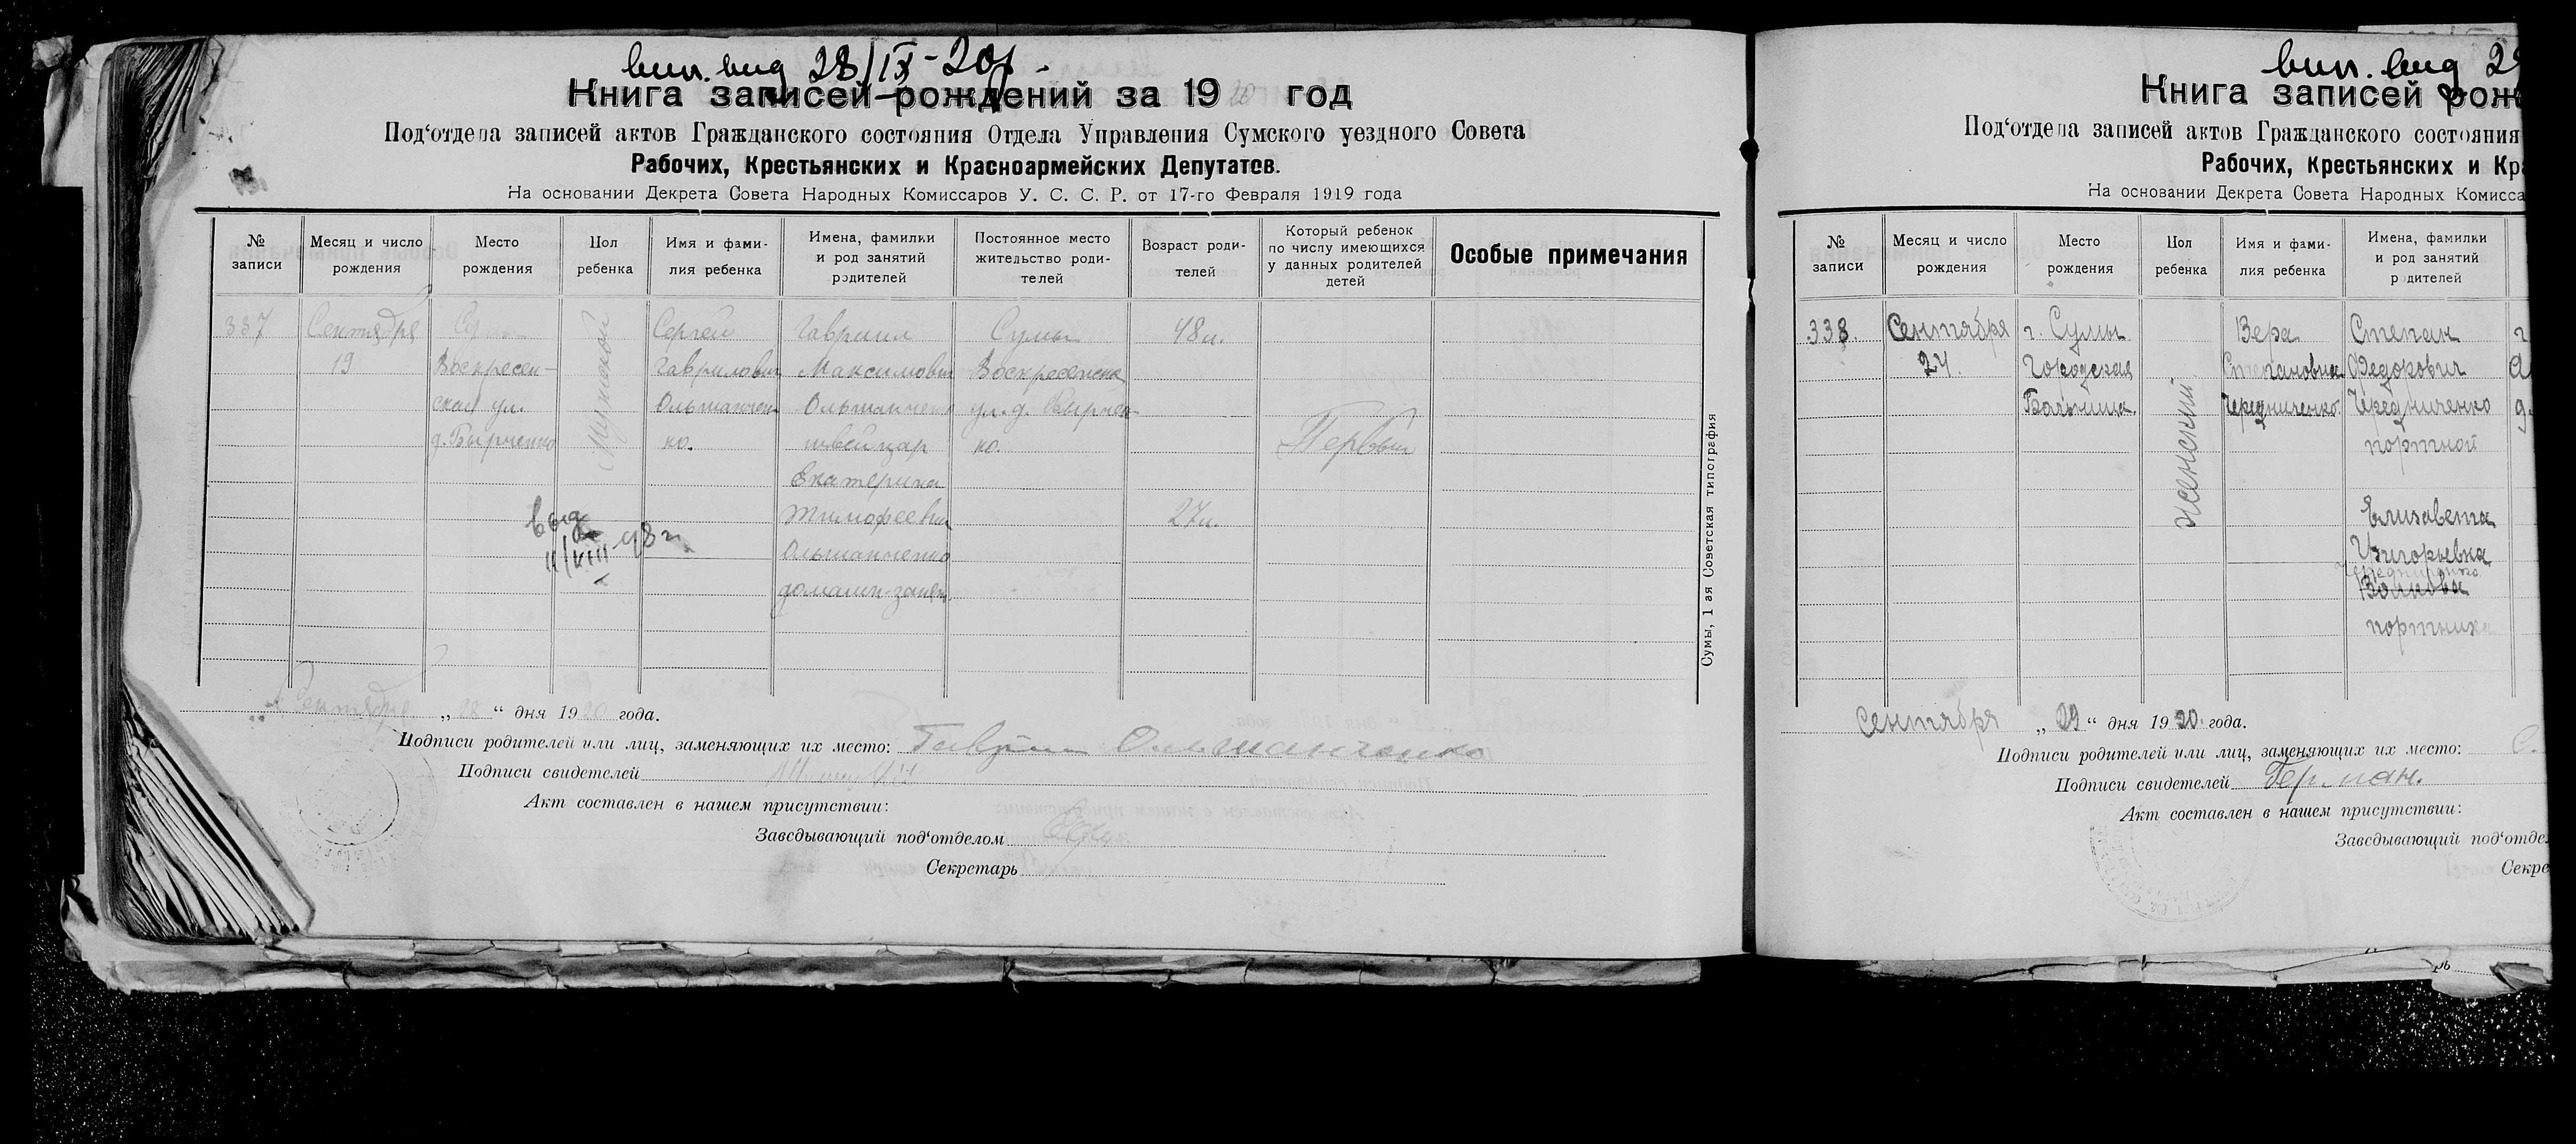 вип. вид 28/IX-20р.
Книга записей рождений за 1920 год
Под‘отдела записей актов Гражданского состояния Отдела Управления Сумского уездного Совета
Рабочих, Крестьянских и Красноармейских Депутатов.
На основании Декрета Совета Народных Комиссаров У. С. С. Р. от 17-го Февраля 1919 года
№ записи
Месяц и число рождения
Место рождения
Пол ребенка
Имя и фами-
лия ребенка
Имена, фамилии
и род занятий
родителей
Постоянное место
жительство роди-
телей
Возраст роди-
телей
Который ребенок
по числу имеющихся
у данных родителей
детей
Особые примечания
337
Сентября
19
Воскресен-
ская ул.
д. Бырченко
Мужской
Сергей
Гаврилович
Ольшанчен
ко.
Гавриил
Максимович
Ольшанченко
швейцар
Екатерина
Тимофеевна
Ольшанченко
домашн. занят.
Сумы
Воскресенска
ул. д. Бырчен
ко.
48 л.
27 л.
Первый
выд
11/VIII-48 г.
Сумы, 1 ая Советская типография
Сентября „28“ дня 1920 года.
Подписи родителей или лиц, заменяющих их место: Гавриил Ольшанченко
Подписи свидетелей
Акт составлен в нашем присутствии:
Заведывающий под‘отделом
Секретарь
вип. вид 29
Книга записей рож
Под‘отдела записей актов Гражданского состояния
Рабочих, Крестьянских и Кра
На основании Декрета Совета Народных Комисса
№ записи
Месяц и число рождения
Место рождения
Пол ребенка
Имя и фами-
лия ребенка
Имена, фамилии
и род занятий
родителей
338.
Сентября
24.
г. Сумы
Городская
Больница.
женский
Вера
Степановна
Чередниченко.
Степан
Федорович
Чередниченко
портной
Елизавета
Григорьевна
Чередниченко
портниха
Сентября „29“ дня 1920 года.
Подписи родителей или лиц, заменяющих их место:
Подписи свидетелей Герман.
Акт составлен в нашем присутствии:
Заведывающий под‘отде
Секре